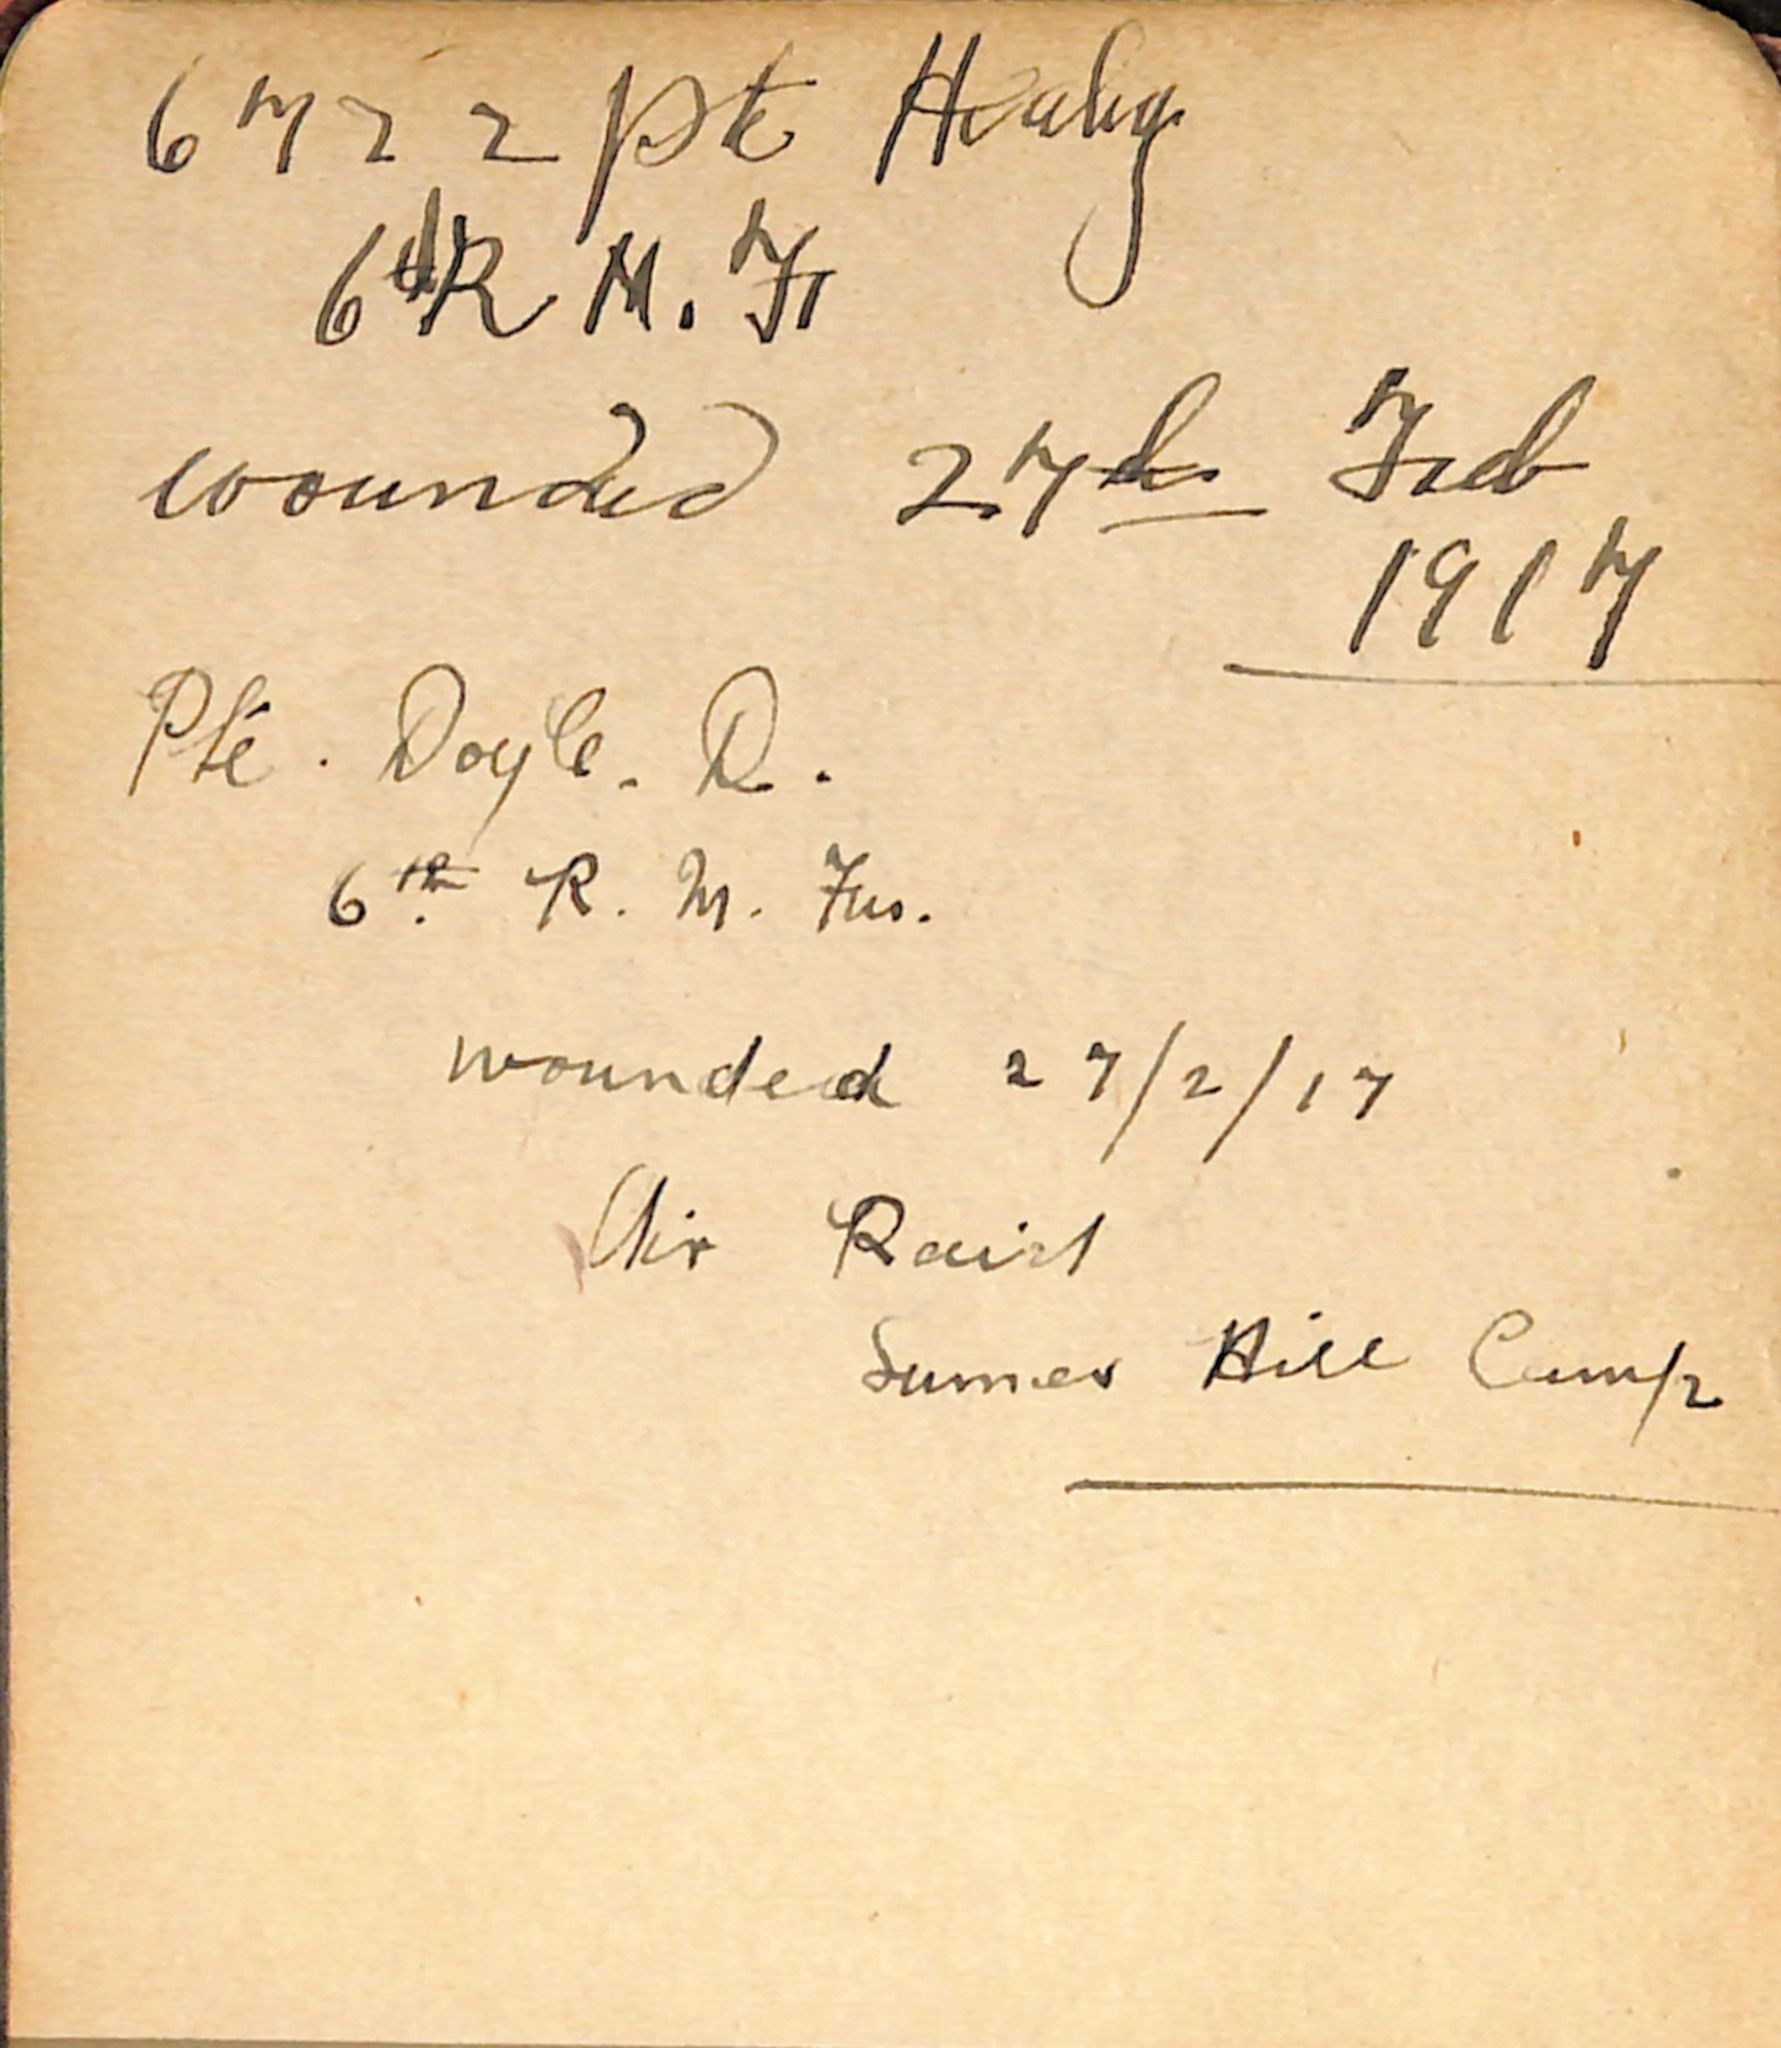 6722 Pte Healy
6th R M. F
wounded 27th Feb
1917
Pte. Doyle. D.
6th. R. M. Fus.
wounded 27/2/17
Air Raid
Summer Hill Camp